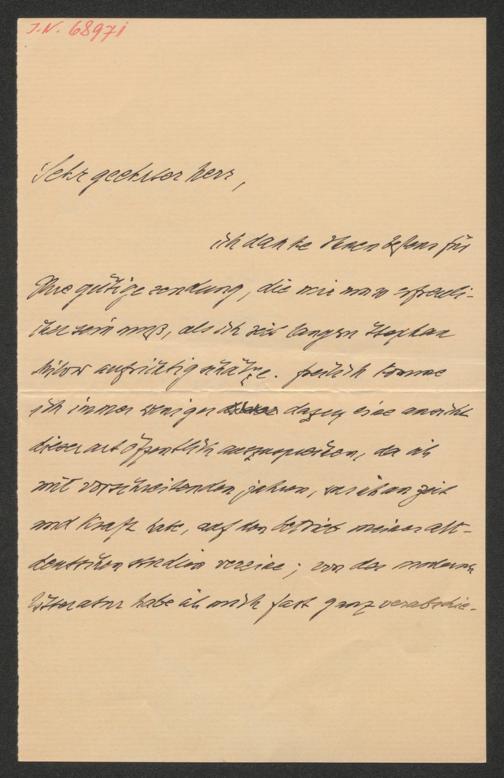 J.N. 68971
Sehr geehrter herr,
ich danke Ihnen bestens für
Ihre gütige sendung, die mir um so erfreuli-
cher sein muß, als ich seit langem Stephan
Milow aufrichtig schätze. freilich komme
ich immer weniger dazu eine ansicht
dieser art öffentlich auszusprechen, da ich
mit vorschreitenden jahren, was ich an zeit
und Kraft habe, auf den betrieb meiner alt-
deutschen studien vereine; von der modernen
Litteratur habe ich mich fast ganz verabschie-